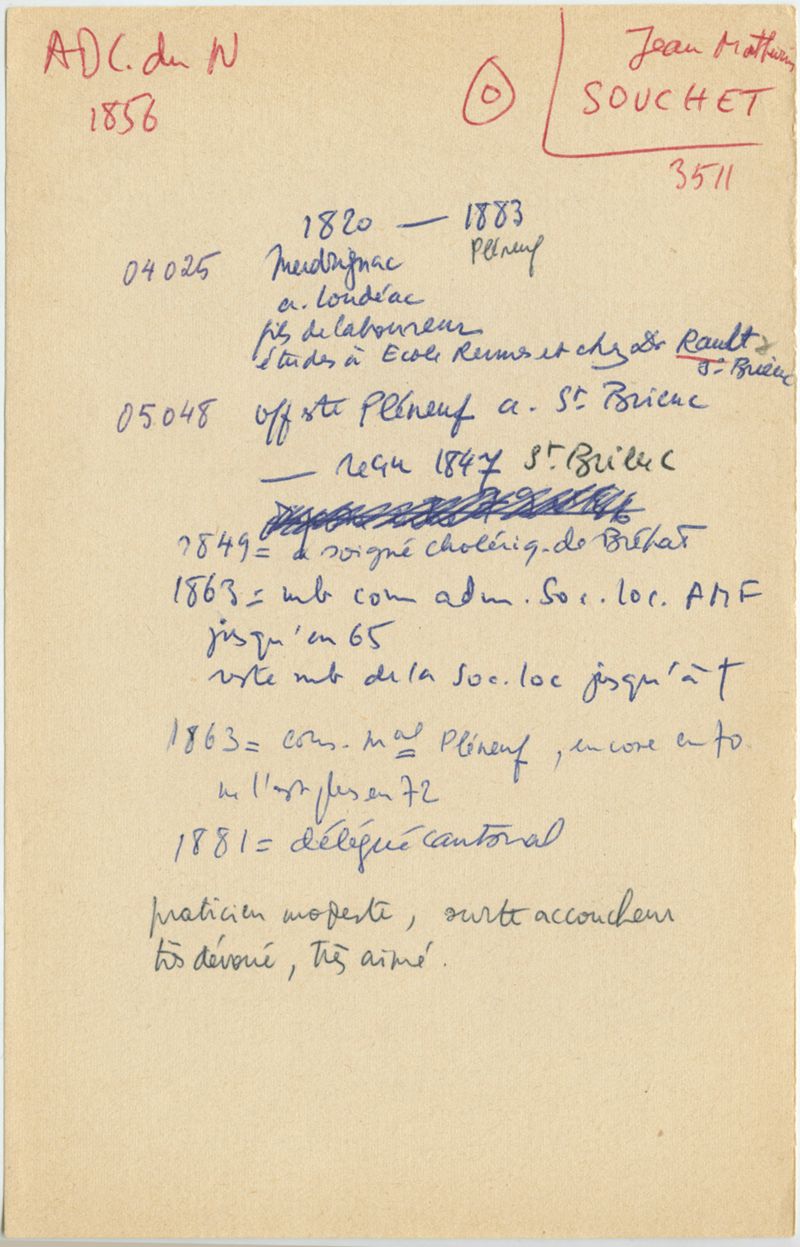 ADC. du N
1856
O
Jean Mathurin
SOUCHET
3511
1820 — 1883
Pléneuf
04025 Merdrignac
a. Loudéac
fils de laboureur
études à Ecole Rennes et chez Dr Rault
St Brieuc
05048 off ste Pléneuf a. St Brieuc
— reçu 1847 St Brieuc
1849 = a soigné cholériq. de Bréhat
1863 = mb com adm. Soc. loc. AMF
jusqu'en 65
reste mb de la Soc. loc jusqu'à †
1863 = cons. mal Pléneuf, encore en 70
ne l'est plus en 72
1881 = délégué cantonal
praticien modeste, surtt accoucheur
très dévoué, très aimé.